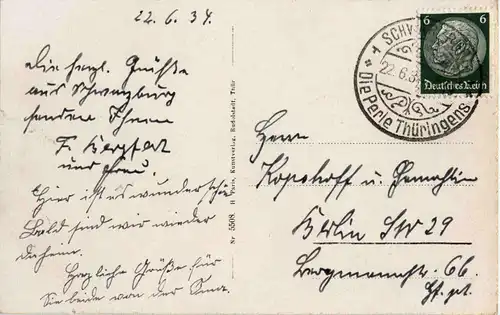 22.6.34.
Die herzl. Grüße
aus Schwarzburg
senden Ihnen
F. Bergfeld
und Frau.
Hier ist es wunderschön
Bald sind wir wieder
daheim.
Herzliche Grüße für
Sie beide von der
Nr 5508. H Paris, Kunstverlag, Rudolstadt, Thür
SCHW
22.6.3
"Die Perle Thüringens"
6 6
Deutsches Reich
Herrn
u. Gemahlin
Berlin SW 29
Bergmannstr. 66.